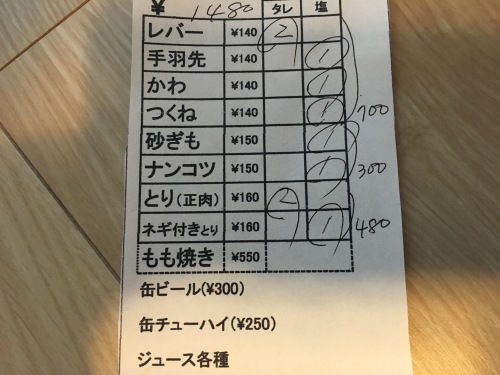 ¥ 1480 タレ 塩
レバー ¥140 2
手羽先 ¥140 1
かわ ¥140 1
つくね ¥140 1 700
砂ぎも ¥150 1
ナンコツ ¥150 1 300
とり(正肉) ¥160 2
ネギ付きとり ¥160 1 480
もも焼き ¥550
缶ビール(¥300)
缶チューハイ(¥250)
ジュース各種